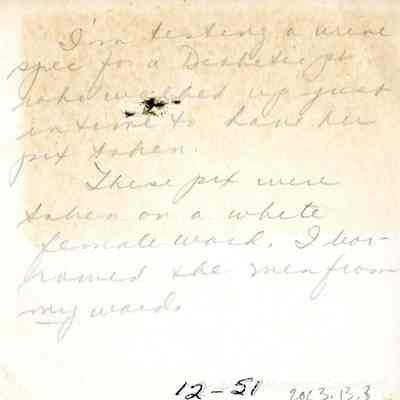 I'm testing a urine
spec for a Diabetic pt
who walked up just
in time to have her
pix taken.
These pix were
taken on a white
female ward. I bor-
rowed the men from
my ward.
12-51 2013.13.3